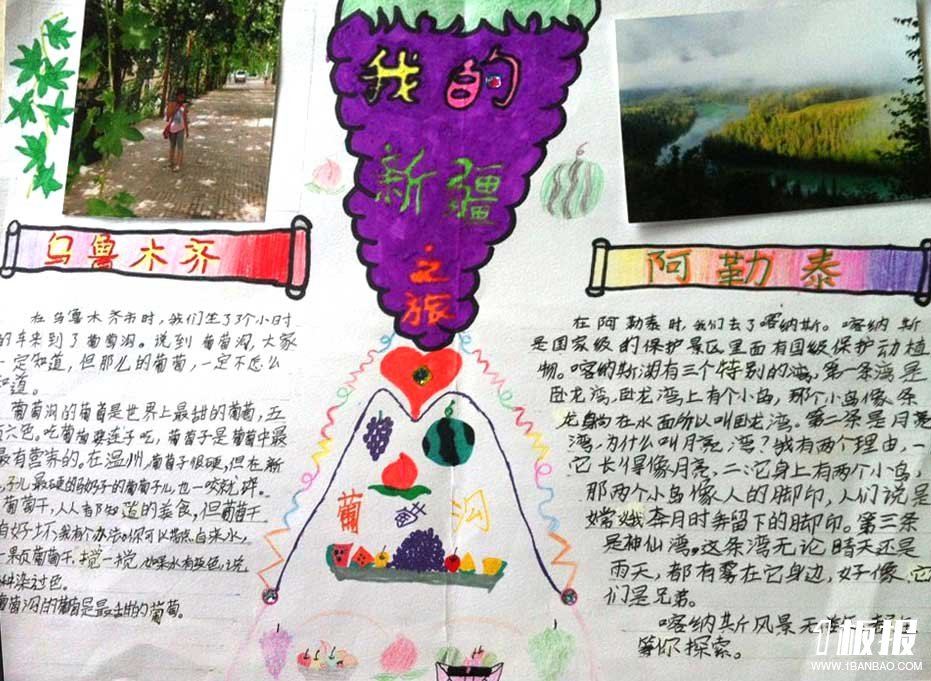 我的
新疆
之旅
乌鲁木齐
在乌鲁木齐市时,我们坐了3个小时
的车来到了葡萄沟。说到葡萄沟,大家
一定知道,但那儿的葡萄,一定不怎么
知道。
葡萄沟的葡萄是世界上最甜的葡萄,五
六色。吃葡萄要连子吃,葡萄子是葡萄中最
最有营养的。在温州,葡萄子很硬,但在新
子儿最硬的
的葡萄子儿,也一咬就碎。
葡萄干,人人都知道的美食,但葡萄干
有好坏,我有个办法,你可以
自来水,
一颗
葡萄干,搅一搅,如果水有灰色,说
染过色。
葡萄沟的葡萄是最甜的葡萄。
葡 沟
阿勒泰
在阿勒泰时,我们去了喀纳斯。喀纳斯
是国家级的保护景区,里面有国级保护动植
物。喀纳斯湖有三个特别的湾,第一条湾是
卧龙湾,卧龙湾上有个小岛,那个小岛像条
龙躺在水面所以叫卧龙湾。第二条是月亮
湾,为什么叫月亮湾?我有两个理由,一
它长得像月亮,二:它身上有两个小岛,
那两个小岛像人的脚印,人们说是
嫦娥奔月时留下的脚印。第三条
是神仙湾。这条湾无论晴天还是
雨天,都有雾在它身边,好像它
们是兄弟。
喀纳斯风景无
等你探索。
板报
WWW.1BANBAO.COM